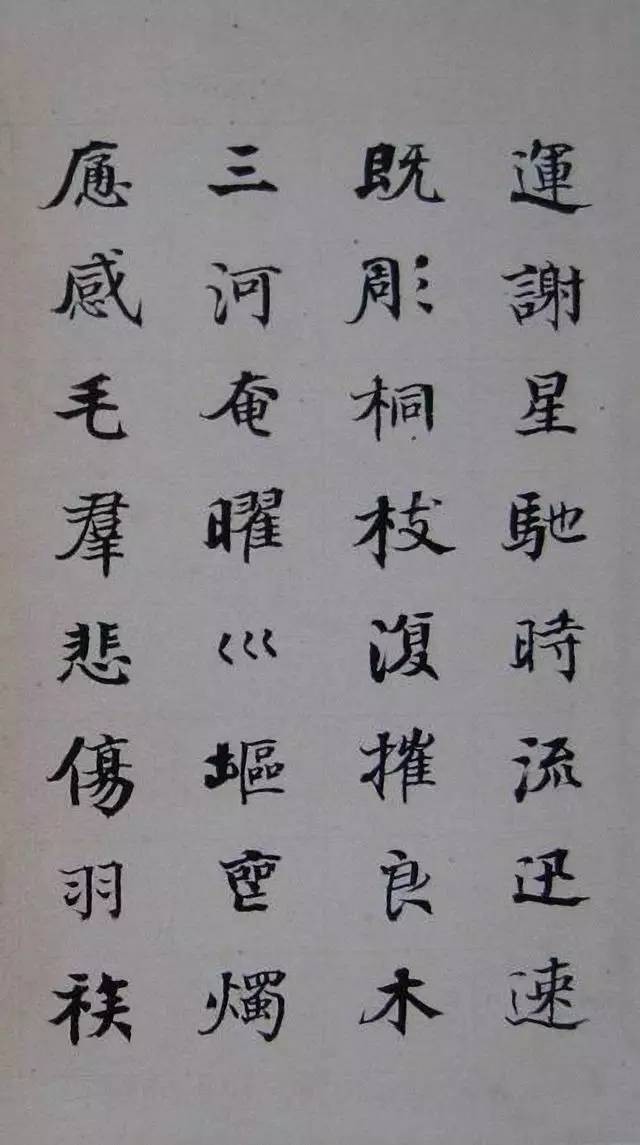 運謝星馳時流迅速
既彫桐枝復摧良木
三河奄曜巛塸燭
感毛羣悲傷羽族